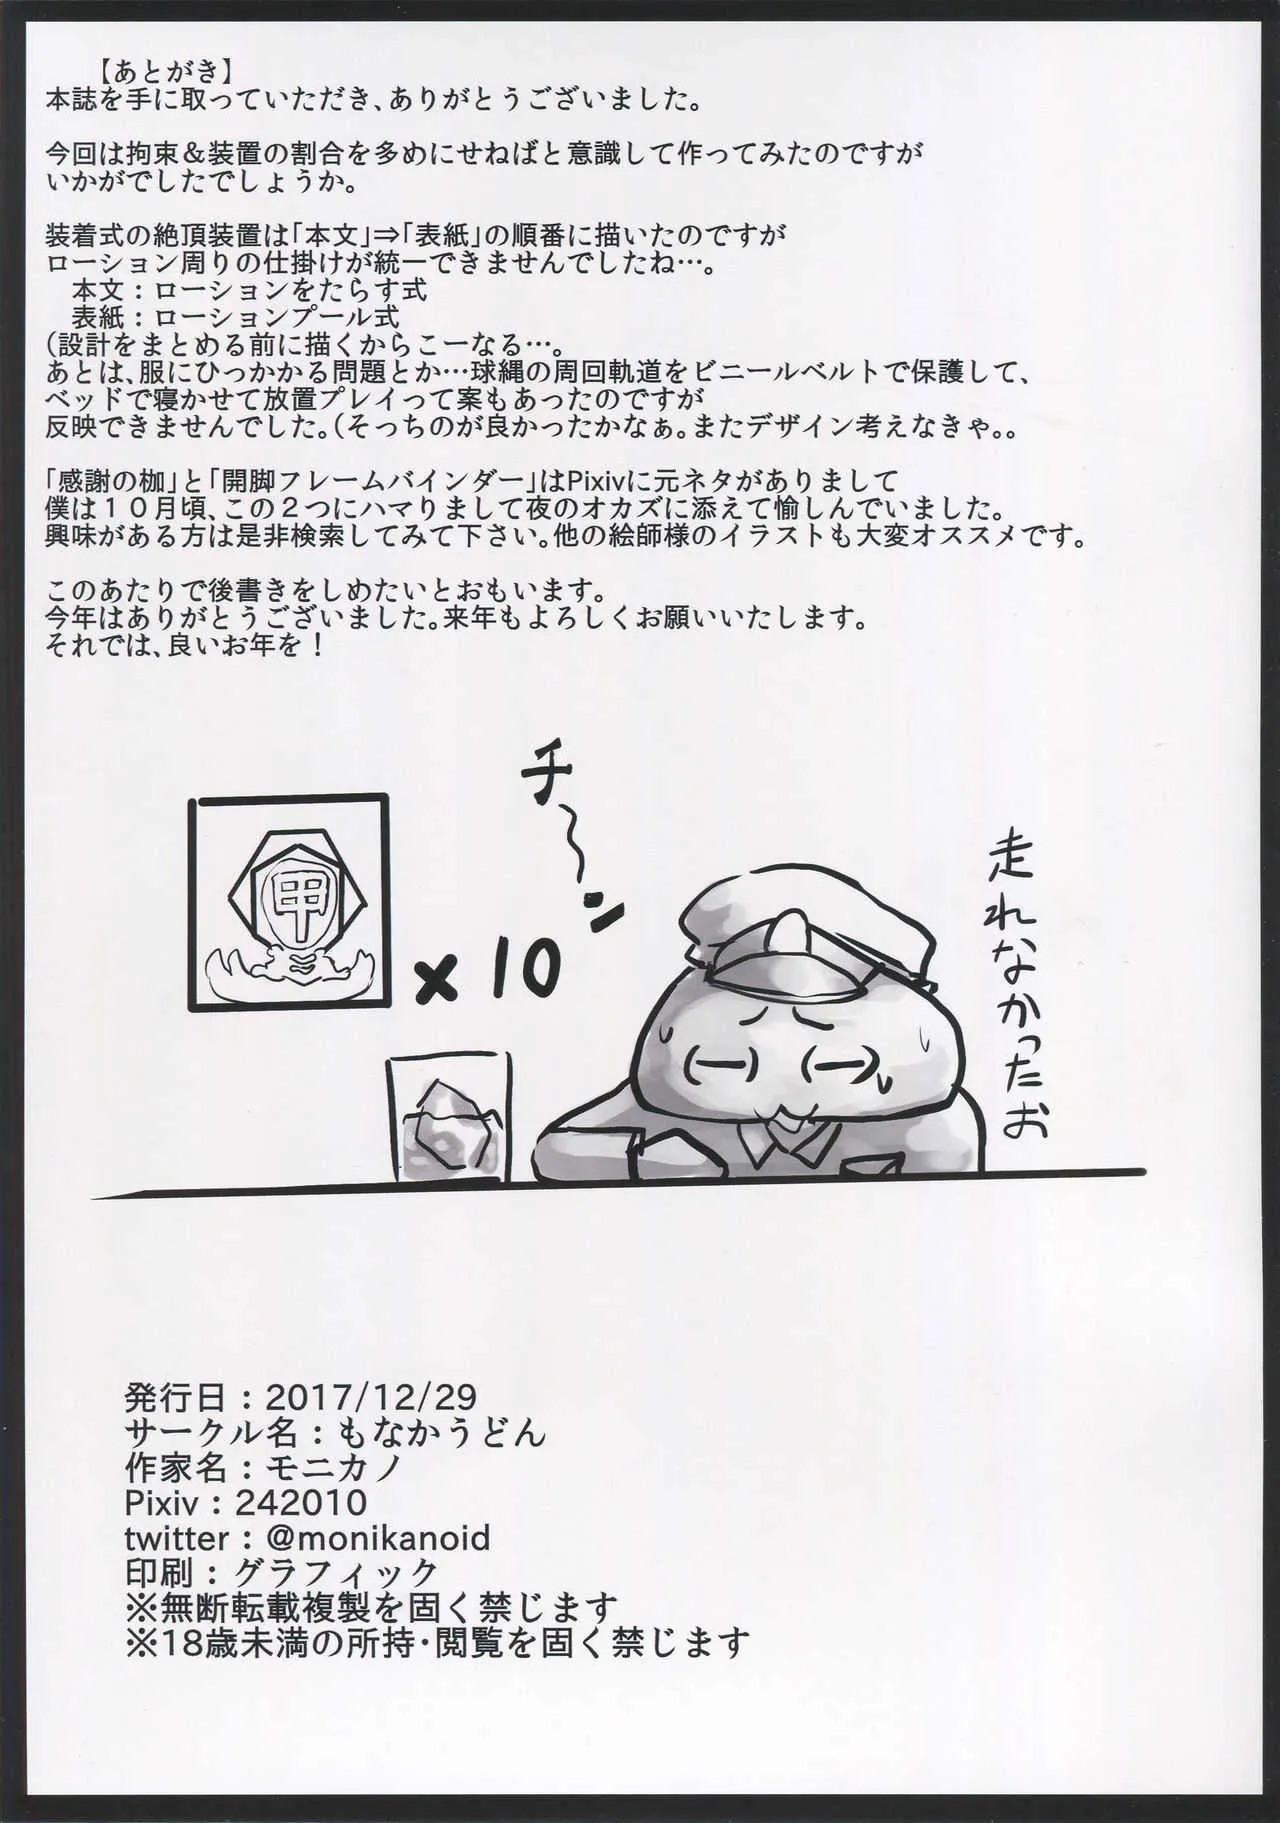 【あとがき】
本誌を手に取っていただき、ありがとうございました。
今回は拘束＆装置の割合を多めにせねばと意識して作ってみたのですが
いかがでしたでしょうか。
装着式の絶頂装置は「本文」⇒「表紙」の順番に描いたのですが
ローション周りの仕掛けが統一できませんでしたね…。
本文：ローションをたらす式
表紙：ローションプール式
（設計をまとめる前に描くからこーなる…。
あとは、服にひっかかる問題とか…球縄の周回軌道をビニールベルトで保護して、
ベッドで寝かせて放置プレイって案もあったのですが
反映できませんでした。（そっちのが良かったかなぁ。またデザイン考えなきゃ。。
「感謝の枷」と「開脚フレームバインダー」はPixivに元ネタがありまして
僕は１０月頃、この２つにハマりまして夜のオカズに添えて愉しんでいました。
興味がある方は是非検索してみて下さい。他の絵師様のイラストも大変オススメです。
このあたりで後書きをしめたいとおもいます。
今年はありがとうございました。来年もよろしくお願いいたします。
それでは、良いお年を！
チ～ン
走れなかったお
甲
×10
発行日：2017/12/29
サークル名：もなかうどん
作家名：モニカノ
Pixiv：242010
twitter：@monikanoid
印刷：グラフィック
※無断転載複製を固く禁じます
※18歳未満の所持・閲覧を固く禁じます